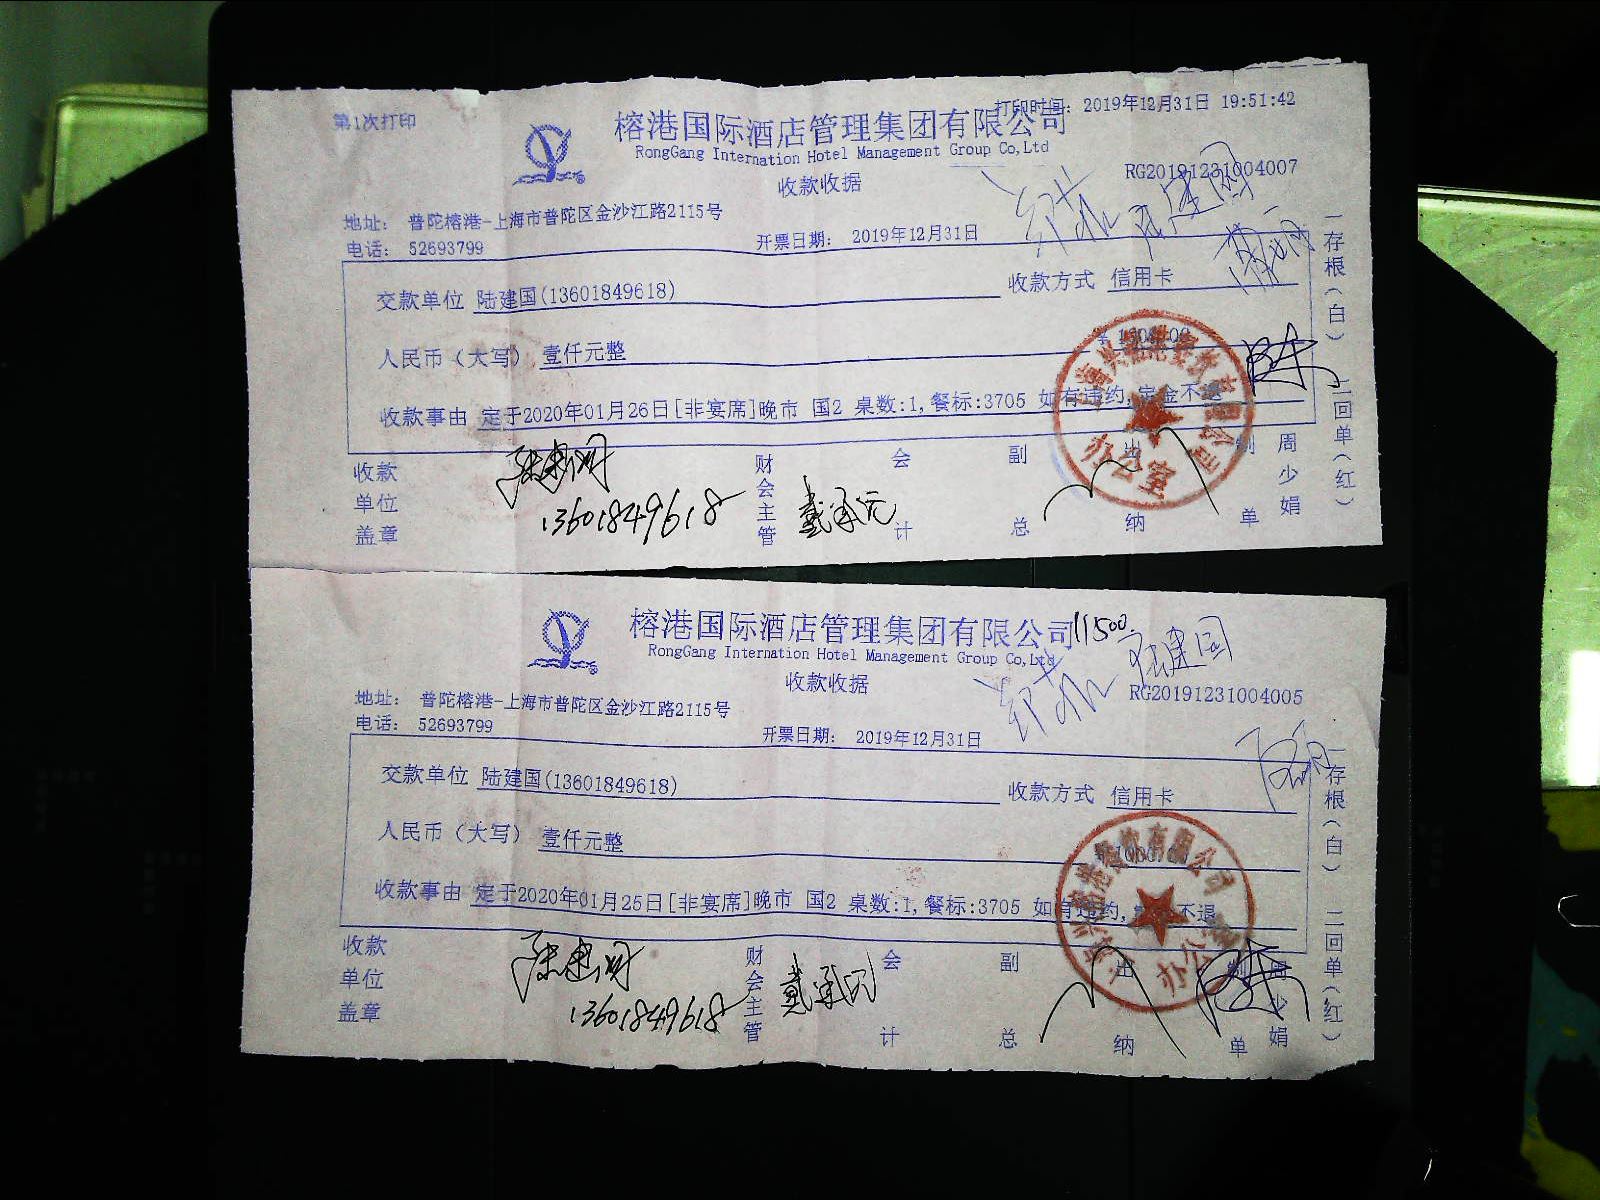 第1次打印
打印时间：2019年12月31日 19:51:42
榕港国际酒店管理集团有限公司
RongGang Internation Hotel Management Group Co,Ltd
收款收据
RG20191231004007
地址： 普陀榕港-上海市普陀区金沙江路2115号
电话： 52693799
开票日期： 2019年12月31日
交款单位 陆建国(13601849618)
收款方式 信用卡
人民币（大写） 壹仟元整
收款事由 定于2020年01月26日[非宴席]晚市 国2 桌数:1,餐标:3705 如有违约,定金不退
收款单位盖章
13601849618
财会主管
会计
副总
出纳
制单
周少娟
办公室
一存根（白） 二回单（红）
榕港国际酒店管理集团有限公司
11500.
RongGang Internation Hotel Management Group Co,Ltd
收款收据
RG20191231004005
地址： 普陀榕港-上海市普陀区金沙江路2115号
电话： 52693799
开票日期： 2019年12月31日
交款单位 陆建国(13601849618)
收款方式 信用卡
人民币（大写） 壹仟元整
收款事由 定于2020年01月25日[非宴席]晚市 国2 桌数:1,餐标:3705 如有违约, 不退
收款单位盖章
13601849618
财会主管
会计
副总
出纳
制单
周少娟
一存根（白） 二回单（红）